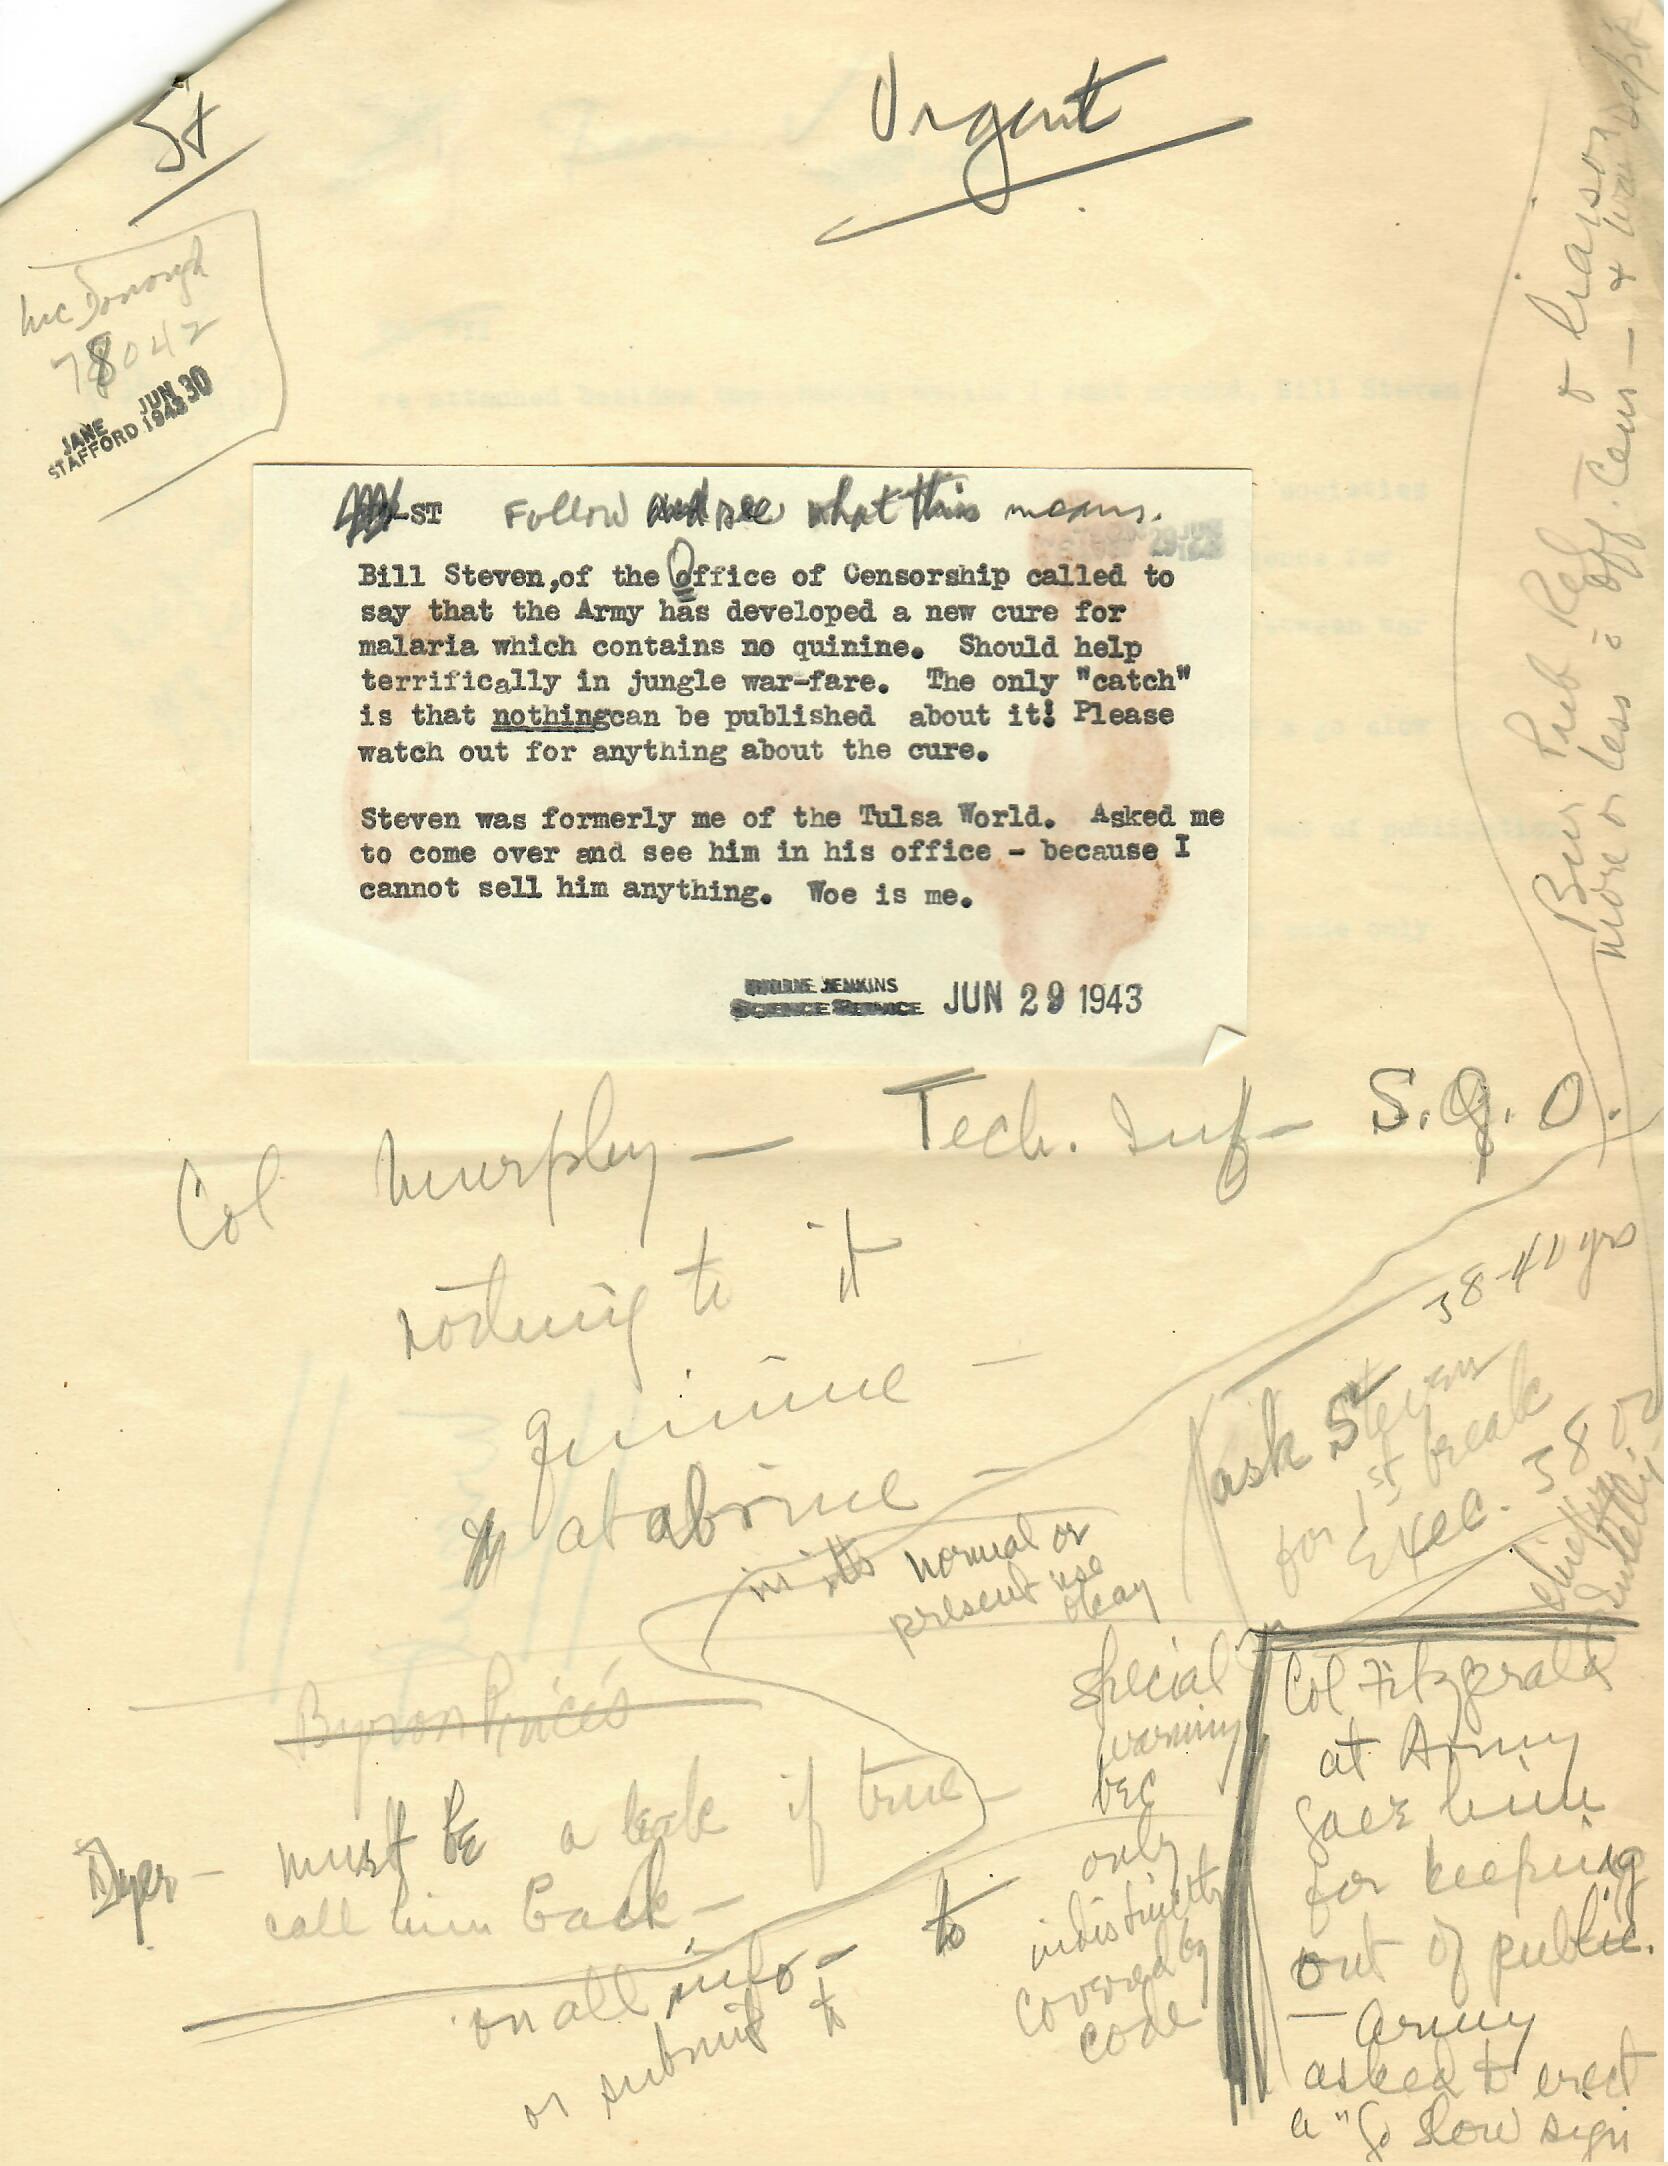 St
Urgent
McDonough
78042
JANE JUN 30
STAFFORD 1943
-ST Follow and see what this means.
Bill Steven,of the Office of Censorship called to
say that the Army has developed a new cure for
malaria which contains no quinine. Should help
terrifically in jungle war-fare. The only "catch"
is that nothingcan be published about it! Please
watch out for anything about the cure.
Steven was formerly me of the Tulsa World. Asked me
to come over and see him in his office - because I
cannot sell him anything. Woe is me.
JENKINS
SCIENCE SERVICE JUN 29 1943
Bur Pub Rel & Liaison
more or less Off. Cens — & War Dept
Col Murphy — Tech. Inf — S.G.O.
nothing to it
quinine —
atabrine —
in its normal or
present use
okay
38-41 yrs
ask Steven
for 1st break
Exec. 38
Byron Price's
Dyer — must be a leak if true —
call him back —
on all info —
or submit to
to
special
warning
bec
only
indistinctly
covered by
code
Col Fitzgerald
at Army
goes him
for keeping
out of public.
— Army
asked to erect
a "Go Slow sign